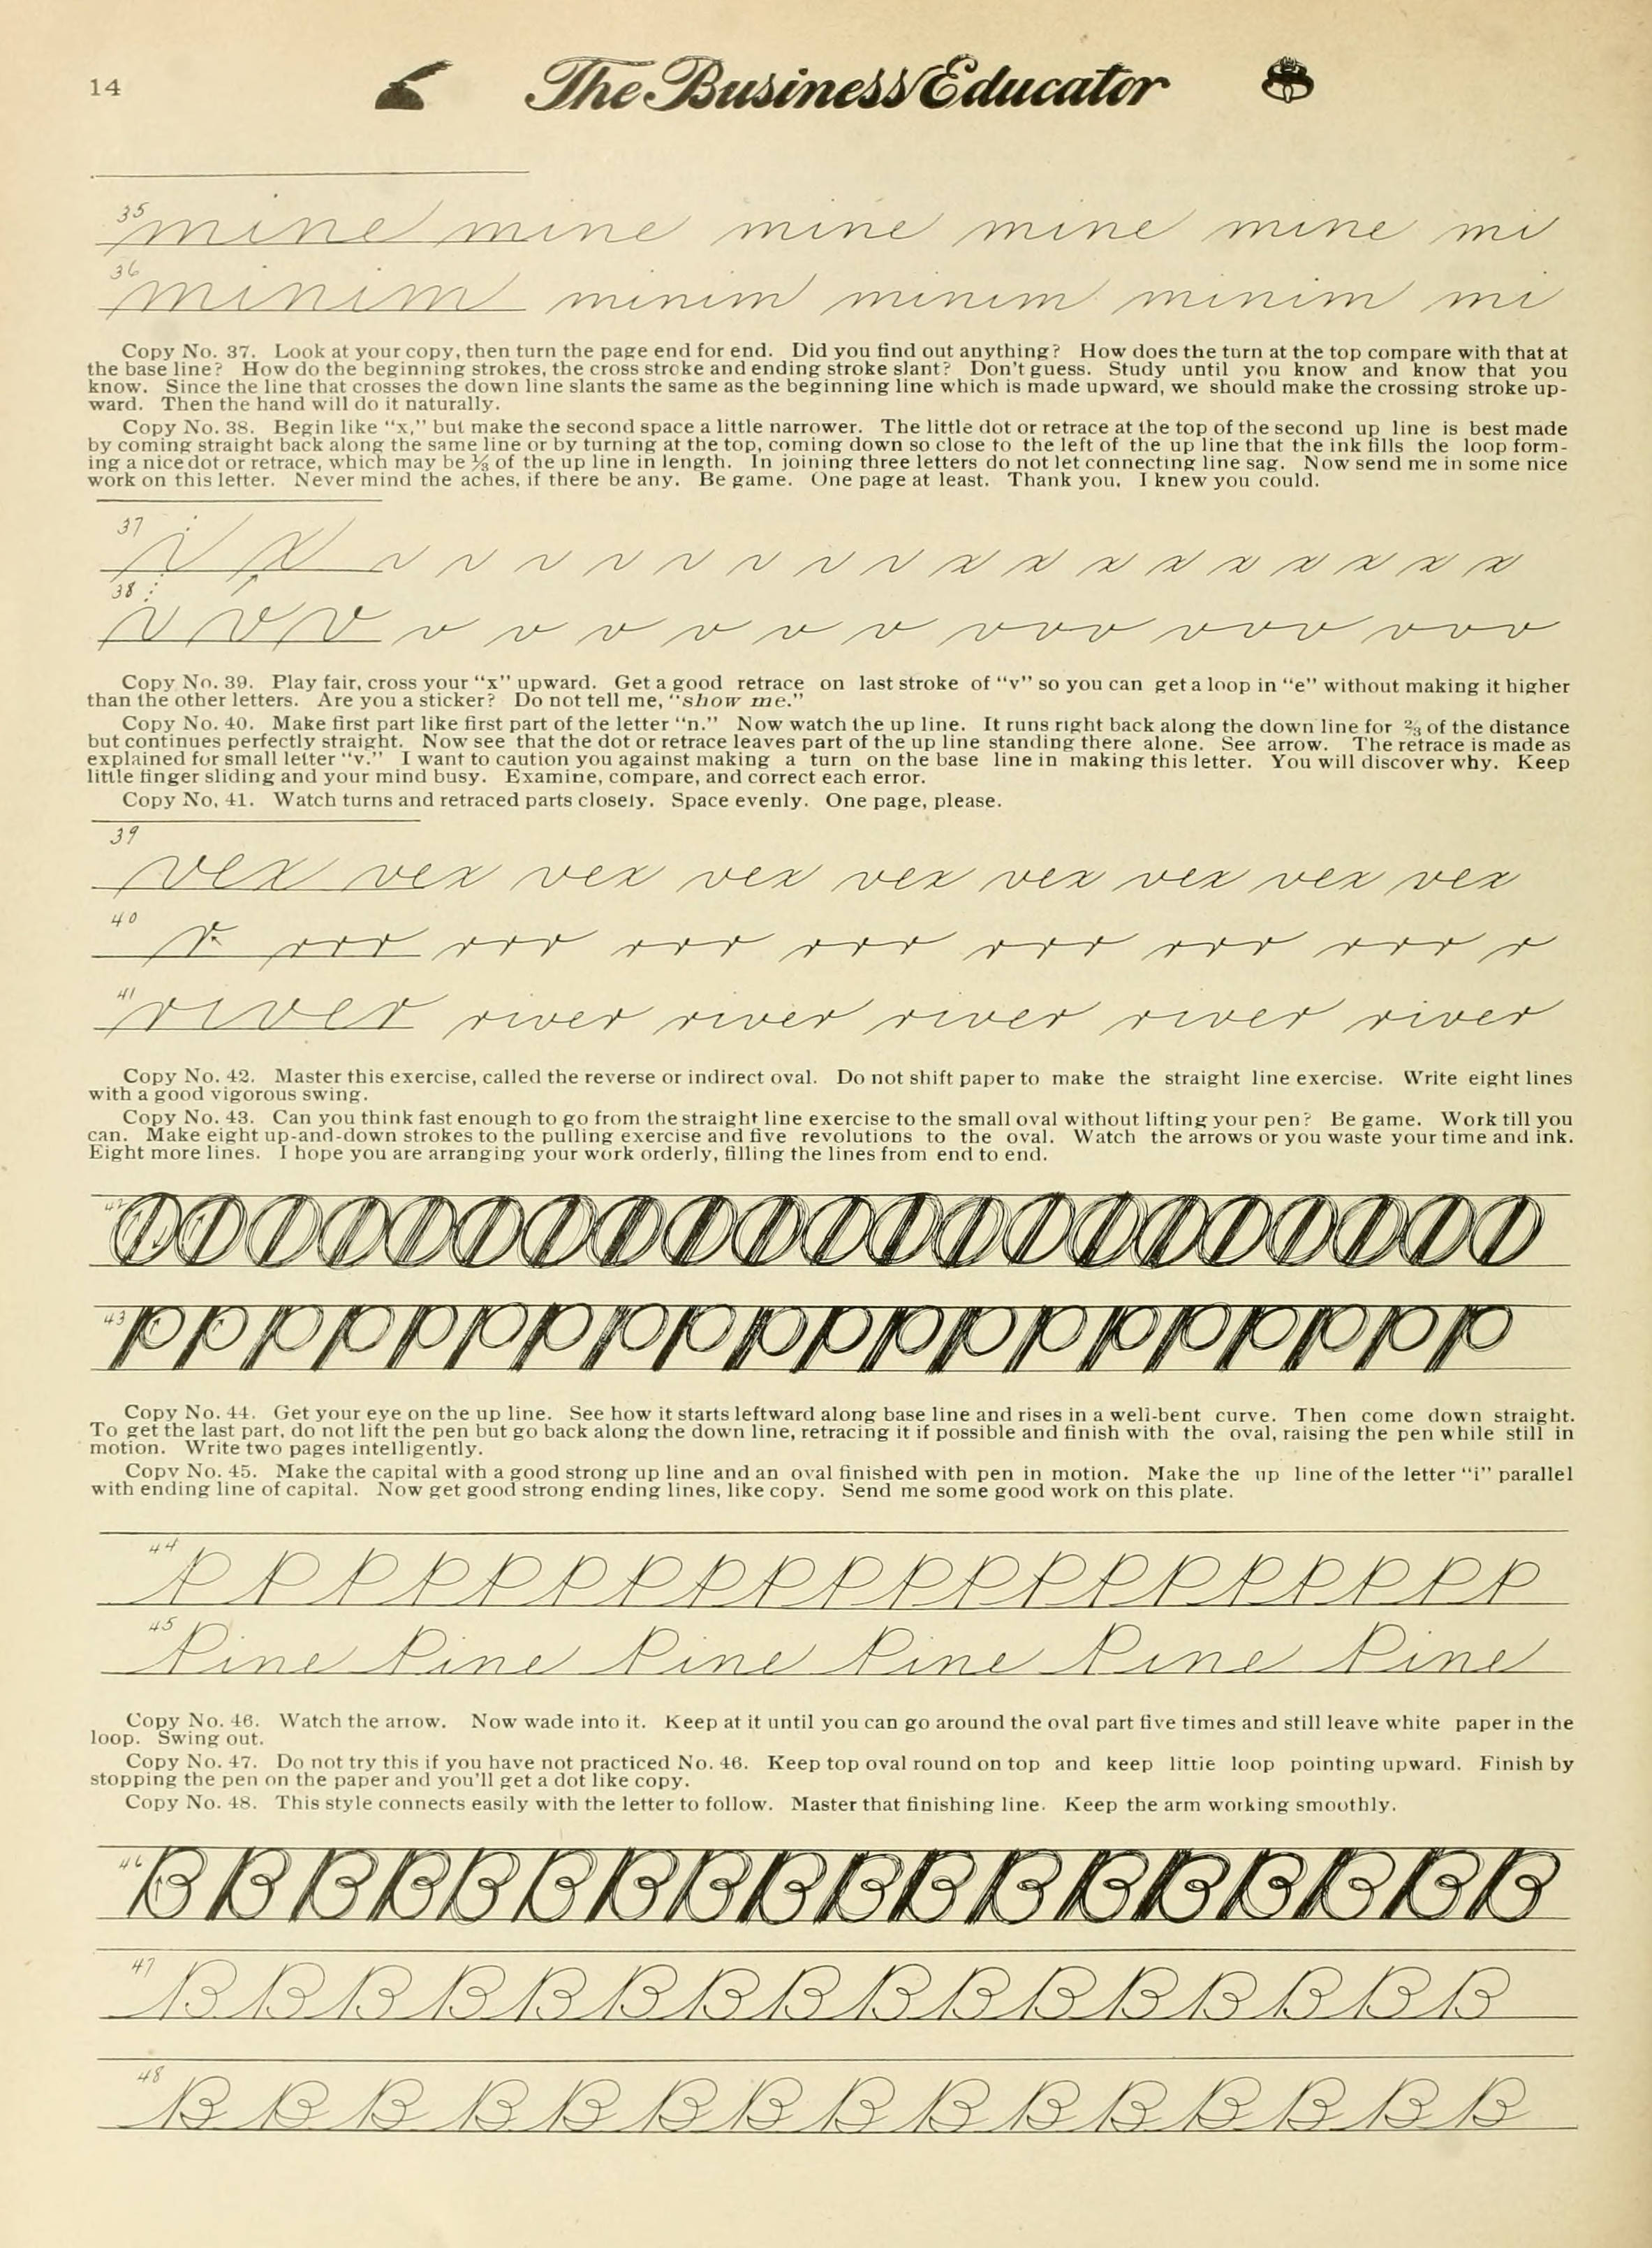 14
The Business Educator
35
mine mine mine mine mine mi
36
minim minim minim minim mi
Copy No. 37. Look at your copy, then turn the page end for end. Did you find out anything? How does the turn at the top compare with that at
the base line? How do the beginning strokes, the cross stroke and ending stroke slant? Don't guess. Study until you know and know that you
know. Since the line that crosses the down line slants the same as the beginning line which is made upward, we should make the crossing stroke up-
ward. Then the hand will do it naturally.
Copy No. 38. Begin like "x," but make the second space a little narrower. The little dot or retrace at the top of the second up line is best made
by coming straight back along the same line or by turning at the top, coming down so close to the left of the up line that the ink fills the loop form-
ing a nice dot or retrace, which may be ⅓ of the up line in length. In joining three letters do not let connecting line sag. Now send me in some nice
work on this letter. Never mind the aches, if there be any. Be game. One page at least. Thank you. I knew you could.
37
x x x x x x x x x x
38
v v v v v v v v v vvv vvv vvv
Copy No. 39. Play fair, cross your "x" upward. Get a good retrace on last stroke of "v" so you can get a loop in "e" without making it higher
than the other letters. Are you a sticker? Do not tell me, "show me."
Copy No. 40. Make first part like first part of the letter "n." Now watch the up line. It runs right back along the down line for ⅔ of the distance
but continues perfectly straight. Now see that the dot or retrace leaves part of the up line standing there alone. See arrow. The retrace is made as
explained for small letter "v." I want to caution you against making a turn on the base line in making this letter. You will discover why. Keep
little finger sliding and your mind busy. Examine, compare, and correct each error.
Copy No. 41. Watch turns and retraced parts closely. Space evenly. One page, please.
39
vex vex vex vex vex vex vex vex vex
40
r rrr rrr rrr rrr rrr rrr rrr r
41
river river river river river river
Copy No. 42. Master this exercise, called the reverse or indirect oval. Do not shift paper to make the straight line exercise. Write eight lines
with a good vigorous swing.
Copy No. 43. Can you think fast enough to go from the straight line exercise to the small oval without lifting your pen? Be game. Work till you
can. Make eight up-and-down strokes to the pulling exercise and five revolutions to the oval. Watch the arrows or you waste your time and ink.
Eight more lines. I hope you are arranging your work orderly, filling the lines from end to end.
42
43
Copy No. 44. Get your eye on the up line. See how it starts leftward along base line and rises in a well-bent curve. Then come down straight.
To get the last part, do not lift the pen but go back along the down line, retracing it if possible and finish with the oval, raising the pen while still in
motion. Write two pages intelligently.
Copy No. 45. Make the capital with a good strong up line and an oval finished with pen in motion. Make the up line of the letter "i" parallel
with ending line of capital. Now get good strong ending lines, like copy. Send me some good work on this plate.
44
P P P P P P P P P P P P P P P P P P P P
45
Pine Pine Pine Pine Pine Pine
Copy No. 46. Watch the arrow. Now wade into it. Keep at it until you can go around the oval part five times and still leave white paper in the
loop. Swing out.
Copy No. 47. Do not try this if you have not practiced No. 46. Keep top oval round on top and keep little loop pointing upward. Finish by
stopping the pen on the paper and you'll get a dot like copy.
Copy No. 48. This style connects easily with the letter to follow. Master that finishing line. Keep the arm working smoothly.
46
B B B B B B B B B B B B B B B B B B
47
B B B B B B B B B B B B B B B B
48
B B B B B B B B B B B B B B B